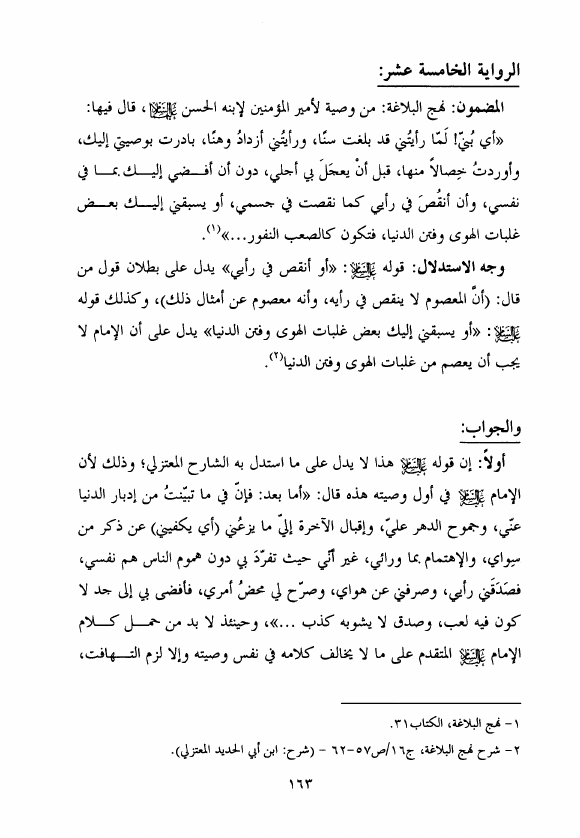 الرواية الخامسة عشر:
المضمون: نهج البلاغة: من وصية لأمير المؤمنين لإبنه الحسن عليه السلام، قال فيها:
«أي بُنيّ! لَمّا رأيتُني قد بلغت سنّا، ورأيتُني أزدادُ وهنًا، بادرت بوصيتي إليك،
وأوردتُ خِصالاً منها، قبل أنْ يعجَلَ بي أجلي، دون أن أفــضي إليــك بمــا في
نفسي، وأن أنقُصَ في رأيي كما نقصت في جسمي، أو يسبقني إليــك بعــض
غلبات الهوى وفتن الدنيا، فتكون كالصعب النفور...»(١).
وجه الاستدلال: قوله عليه السلام: «أو أنقص في رأيي» يدل على بطلان قول من
قال: (أنَّ المعصوم لا ينقص في رأيه، وأنه معصوم عن أمثال ذلك)، وكذلك قوله
عليه السلام: «أو يسبقني إليك بعض غلبات الهوى وفتن الدنيا» يدل على أن الإمام لا
يجب أن يعصم من غلبات الهوى وفتن الدنيا(٢).
والجواب:
أولاً: إن قوله عليه السلام هذا لا يدل على ما استدل به الشارح المعتزلي؛ وذلك لأن
الإمام عليه السلام في أول وصيته هذه قال: «أما بعد: فإنّ في ما تبيّنتُ من إدبار الدنيا
عنّي، وجموح الدهر عليّ، وإقبال الآخرة إليّ ما يزعُني (أي يكفيني) عن ذكر من
سِواي، والإهتمام بما ورائي، غير أنّي حيث تفرّدَ بي دون هموم الناس هم نفسي،
فصَدَقَني رأيي، وصرفني عن هواي، وصرّح لي محضُ أمري، فأفضى بي إلى جد لا
كون فيه لعب، وصدق لا يشوبه كذب ...»، وحينئذ لا بد من حمــل كــلام
الإمام عليه السلام المتقدم على ما لا يخالف كلامه في نفس وصيته وإلا لزم التــهافت،
١- نهج البلاغة، الكتاب٣١.
٢- شرح نهج البلاغة، ج١٦/ص٥٧-٦٢ - (شرح: ابن أبي الحديد المعتزلي).
١٦٣